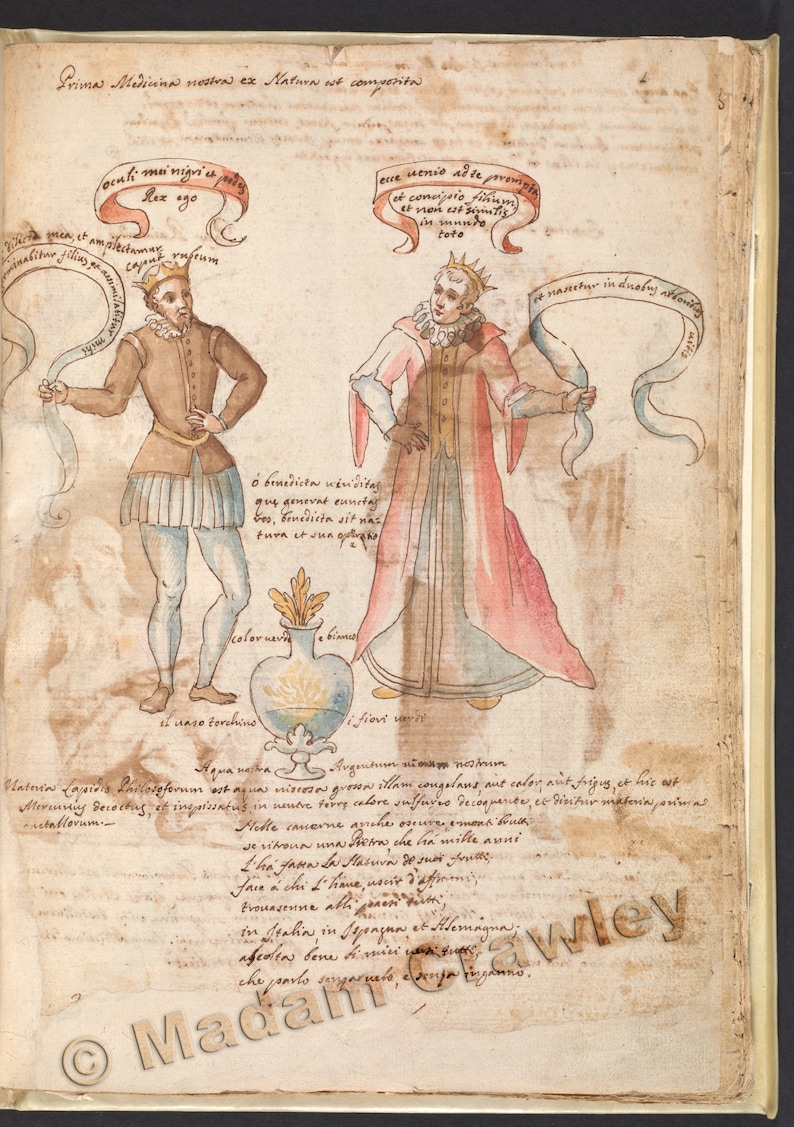 Prima Medicina nostra ex Natura est composita
oculi mei nigri et pedes
Rex ego
ecce venio ad te prompta
et concipio filium
et non est similis
in mundo
toto
dilecta mea, et amplectamur
caput rubeum
filius et assimilabitur
mihi
et nascetur in duobus
ó benedicta viriditas
quę generat cunctas
res, benedicta sit na=
tura et sua operatio
color verde e bianco
il vaso torchino i fiori verdi
Aqua nostra Argentum nostrum
Materia Lapidis Philosoforum est aqua viscosa grossa illam congelans, aùt calor, aùt frigus, et hic est
Mercurius decoctus, et inspissatus, in ventre terrę calore sulfureo decoquente, et dicitur materia prima
metallorum.
Nelle caverne anche oscure, e monti brutti
se ritrova una Pietra, che há mille anni
L'há fatta La Natura de suoi frutti,
face á chi L'have, uscir d'affanni,
trovasenne alli paesi tutti,
in Italia, in Ispagna et Alemagna,
ascolta bene li miei versi tutti,
che parlo senza velo, e senza inganno.
© Madam Crawley